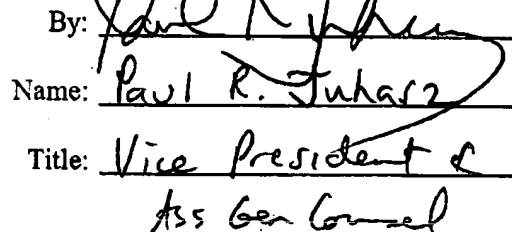 By: Paul R. Juhasz
Name: Paul R. Juhasz
Title: Vice President &
Ass Gen Counsel